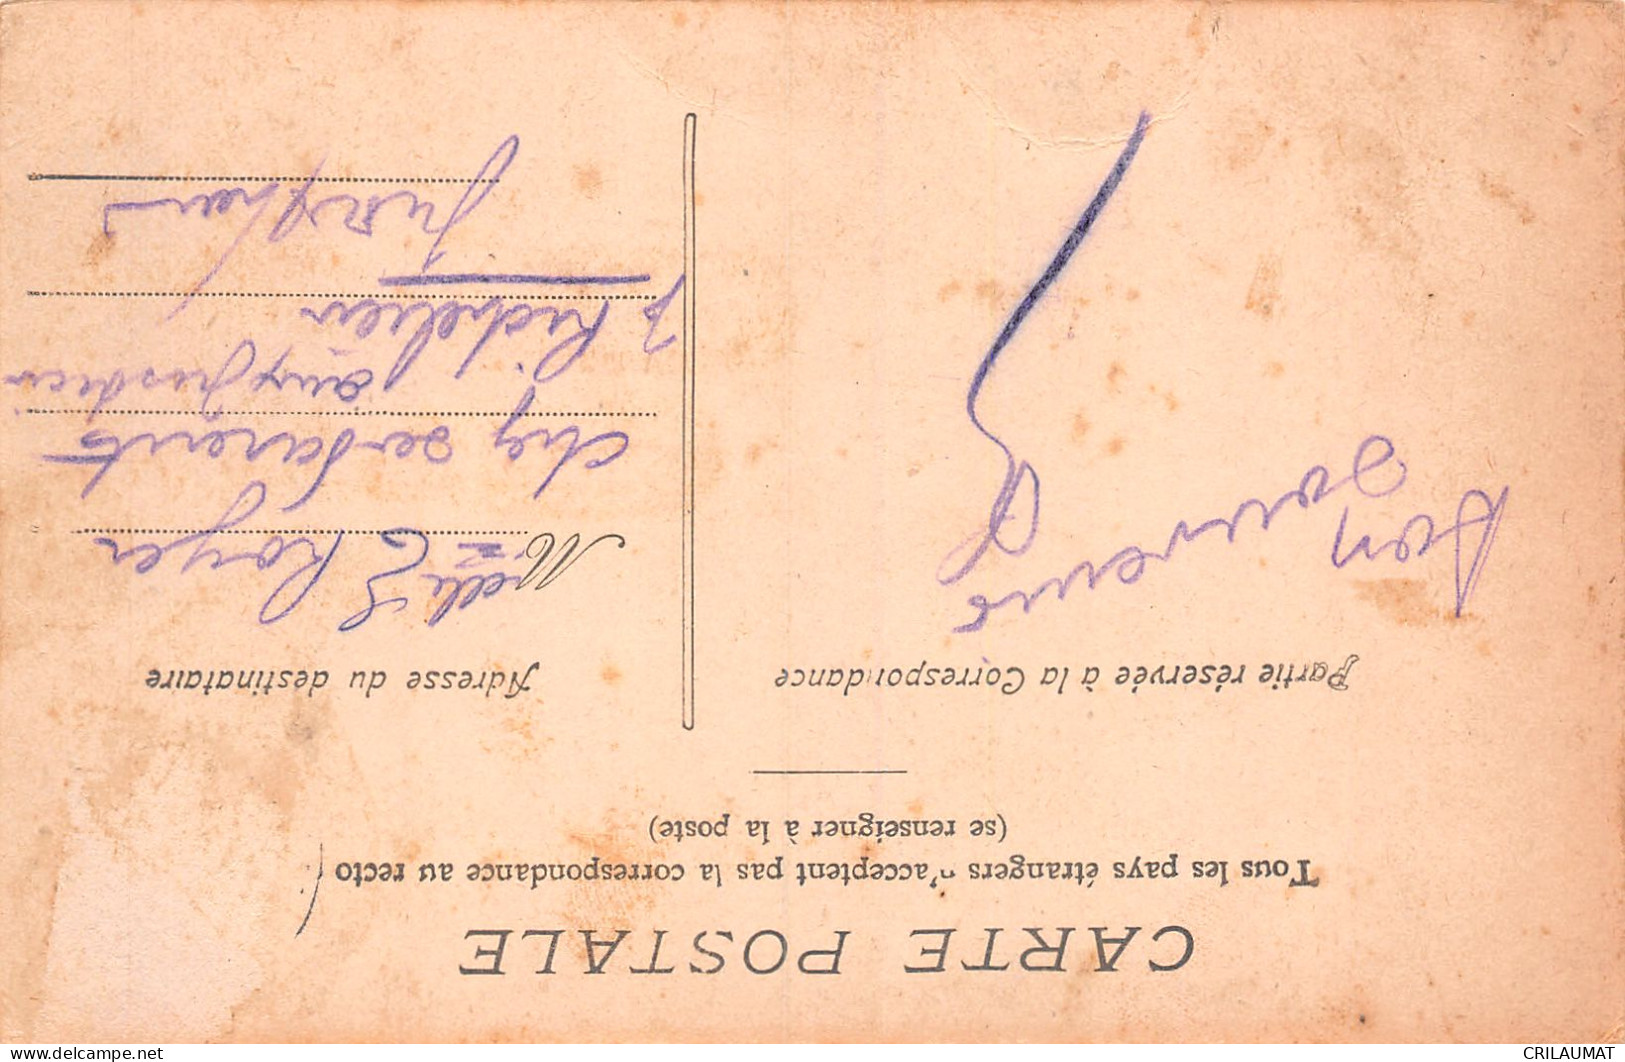 CARTE POSTALE
Tous les pays étrangers n'acceptent pas la correspondance au recto
(se renseigner à la poste)
Partie réservée à la Correspondance
Bon
souvenir
Adresse du destinataire
Melle Royer
chez ses Parents
Richelieu
CRILAUMAT